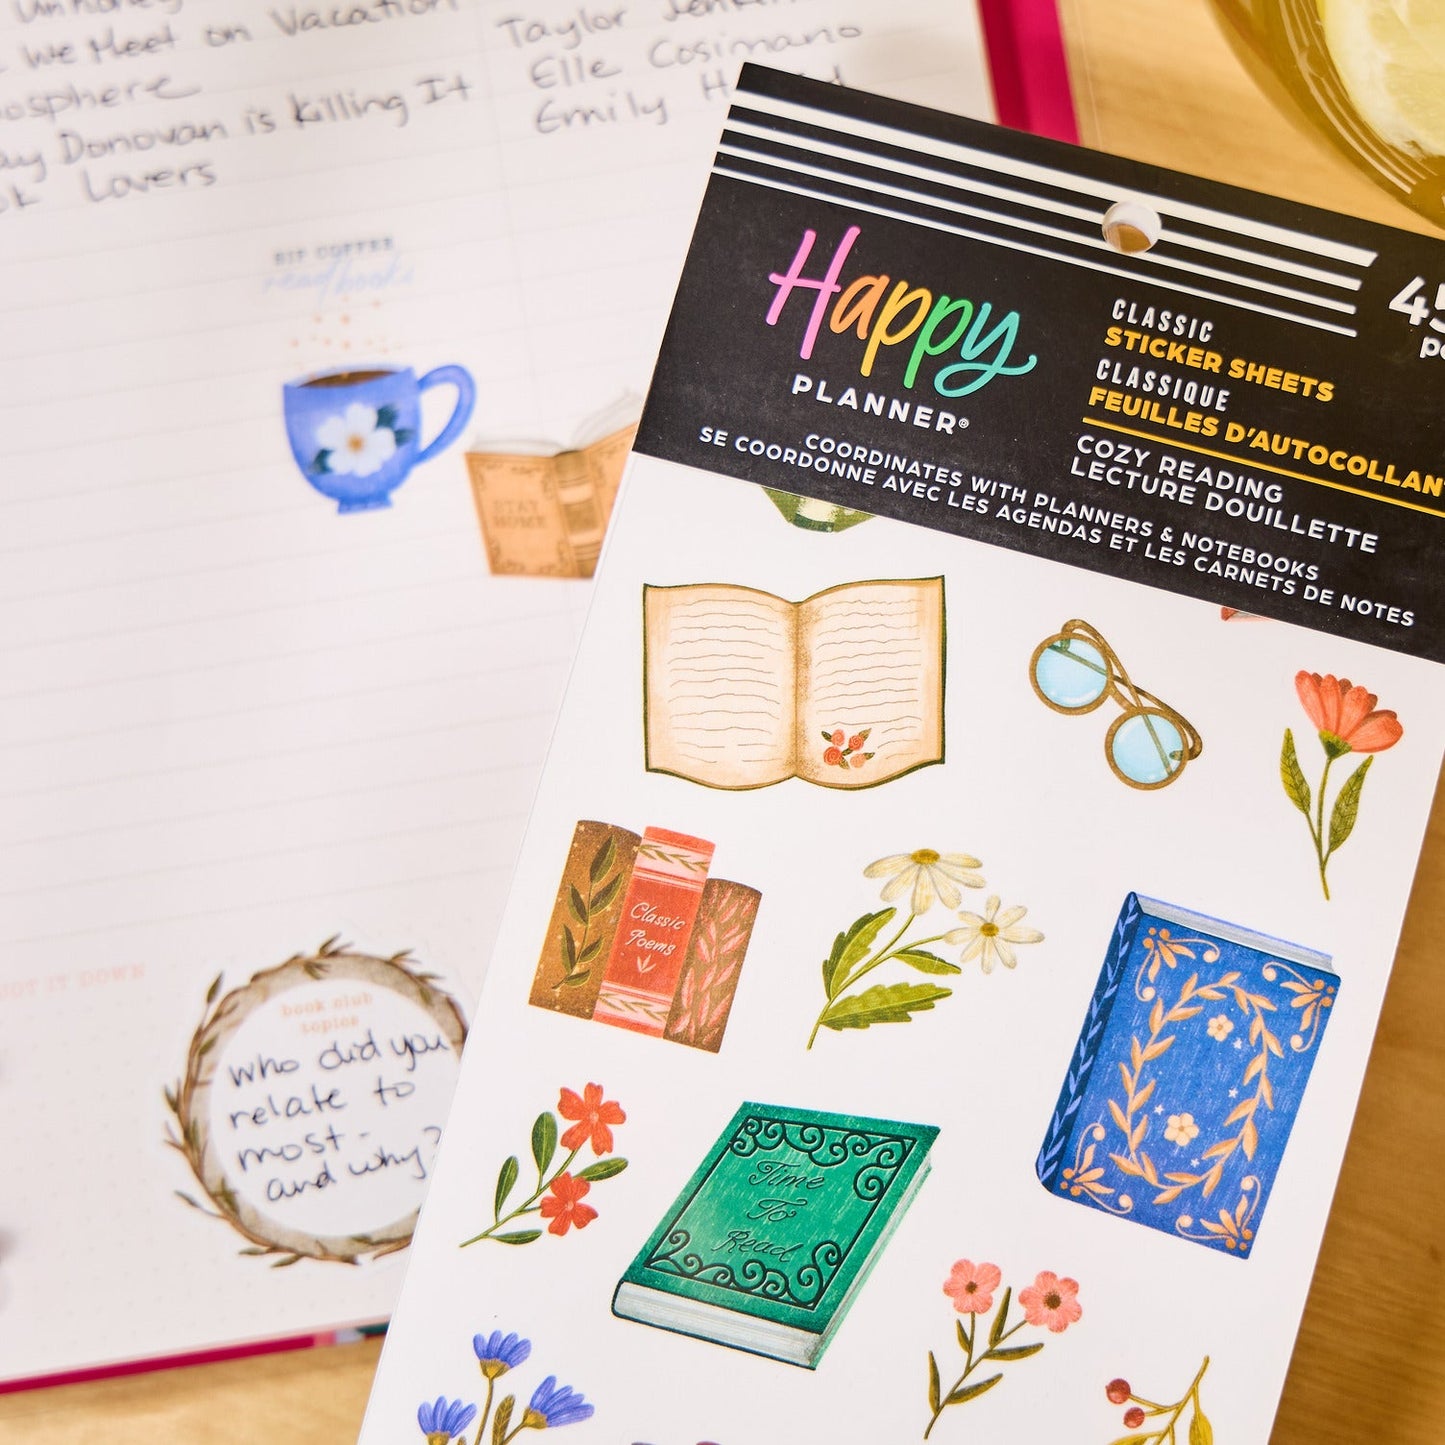 We Meet on Vacation
Taylor
Elle Cosimano
Donovan is Killing It
Emily
Lovers
SIP COFFEE
read books
STAY
HOME
Happy
PLANNER®
CLASSIC
STICKER SHEETS
CLASSIQUE
FEUILLES D'AUTOCOLLANT
COZY READING
LECTURE DOUILLETTE
COORDINATES WITH PLANNERS & NOTEBOOKS
SE COORDONNE AVEC LES AGENDAS ET LES CARNETS DE NOTES
Classic
Poems
Time
To
Read
book club
topics
Who did you
relate to
most -
and why?
IT DOWN